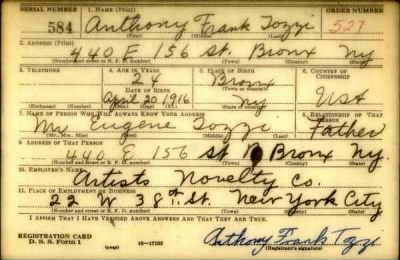 SERIAL NUMBER 1. NAME (Print) ORDER NUMBER
584 Anthony Frank Tozzi 527
2. ADDRESS (Print)
440 E 156 St. Bronx NY
(Town) (County) (State)
3. TELEPHONE 4. AGE IN YEARS 5. PLACE OF BIRTH 6. COUNTRY OF CITIZENSHIP
24 Bronx
DATE OF BIRTH
April 20 1916 NY USA
(Exchange) (Number) (Mo.) (Day) (Yr.) (State or country)
7. NAME OF PERSON WHO WILL ALWAYS KNOW YOUR ADDRESS 8. RELATIONSHIP OF THAT PERSON
Mr. Eugene Tozzi Father
(Mr., Mrs., Miss) (First) (Middle) (Last)
9. ADDRESS OF THAT PERSON
440 E 156 St Bronx Ny.
(Number and street or R. F. D. number) (Town) (County) (State)
10. EMPLOYER'S NAME
Artists Novelty Co.
11. PLACE OF EMPLOYMENT OR BUSINESS
22 W 38th. St. New York City
(Number and street or R. F. D. number) (Town) (County) (State)
I AFFIRM THAT I HAVE VERIFIED ABOVE ANSWERS AND THAT THEY ARE TRUE.
REGISTRATION CARD
D. S. S. Form 1 (over) 16-17105 Anthony Frank Tozzi
(Registrant's signature)